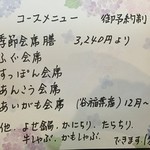 コースメニュー 御予約制
季節会席膳 3,240円より
ふぐ会席
すっぽん会席
あんこう会席
あいがも会席 (谷福奈産) 12月〜
他、よせ鍋、かにちり、たらちり、
牛しゃぶ、かもしゃぶ、できます